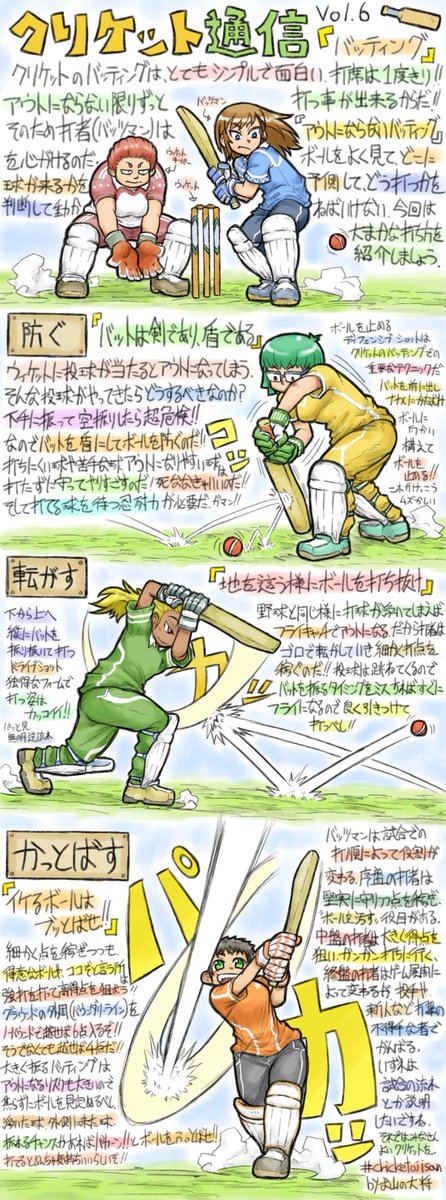 クリケット通信 Vol.6
『バッティング』
クリケットのバッティングは、とてもシンプルで面白い。打席は1度きり!!
アウトにならない限りずっと打つ事が出来るからだ!!
そのため打者(バッツマン)は『アウトにならないバッティング』
を心がけるのだ。ボールをよく見て、どこに
球が来るかを予測して、どう打つかを
判断して動かねばいけない。今回は
大まかな打ち方を
紹介しましょう。
バッツマン
ウィケットキーパー
ウィケット
防ぐ
『バットは剣であり、盾である』
ウィケットに投球が当たるとアウトになってしまう。
そんな投球がやってきたらどうするべきなのか?
下手に振って空振りしたら超危険!!
なのでバットを盾にしてボールを防ぐのだ!!
打ちにくい球や苦手な球、アウトになりやすい球は
打たずに守ってやりすごすのだ!!死ななきゃいいのだ!!
そして打てる球を待つ忍耐力が必要だ、ガマン!!
コッ
ボールを止める
ディフェンシブショットは
クリケットのバッティングでの
重要なテクニックだ
バットを前に出し
ナナメにかたむけ
ボールに
むかい
構えて
ボールを
止める!!
これがけっこう
ムズかしい
転がす
『地を這う様にボールを打ち抜け』
下から上へ
縦にバットを
振り抜いて打つ
ドライブショット
独得なフォームで
打つ姿は
カッコイイ!!
パッと見
無明逆流れ
カッ
野球と同じ様に打球が浮いてしまえば
フライキャッチでアウトになる。だから打者は
ゴロで転がしていき細かく点を
稼ぐのだ!!投球は跳ねてくるので
バットを振るタイミングをミスすればすぐに
フライになるので良く引きつけて
打つべし!!
かっとばす
『イケるボールは
ブッとばせ!!』
細かく点を稼ぎつつも、
得意なボールや、ココぞと言う所は
強打を打って高得点を狙おう!!
グラウンドの外周(バウンダリーライン)を
ノーバウンドで越せば6点入るぞ!!
そうでなくても越せば4点だ!!
大きく振るバッティングは
アウトになるリスクも大きいので
焦らずにボールを見定めるべし。
パカーン!!とボールをぶっとばせ!!
パカッ
バッツマンは試合での
打順によって役割が
変わる。序盤の打者は
堅実に守りつつ点を稼ぎ、
ボールを汚す。役目がある。
中盤の打者は大きく得点を
狙い、ガンガン打ちに行く。
終盤の打者はゲーム展開に
よって変わるが、投手や
新人など打撃の
不得手な者で
がんばる。
いずれは
試合の流れ
とか説明
したいぞする。
よいクリケットを。
#chicketojisan
by お山の大将